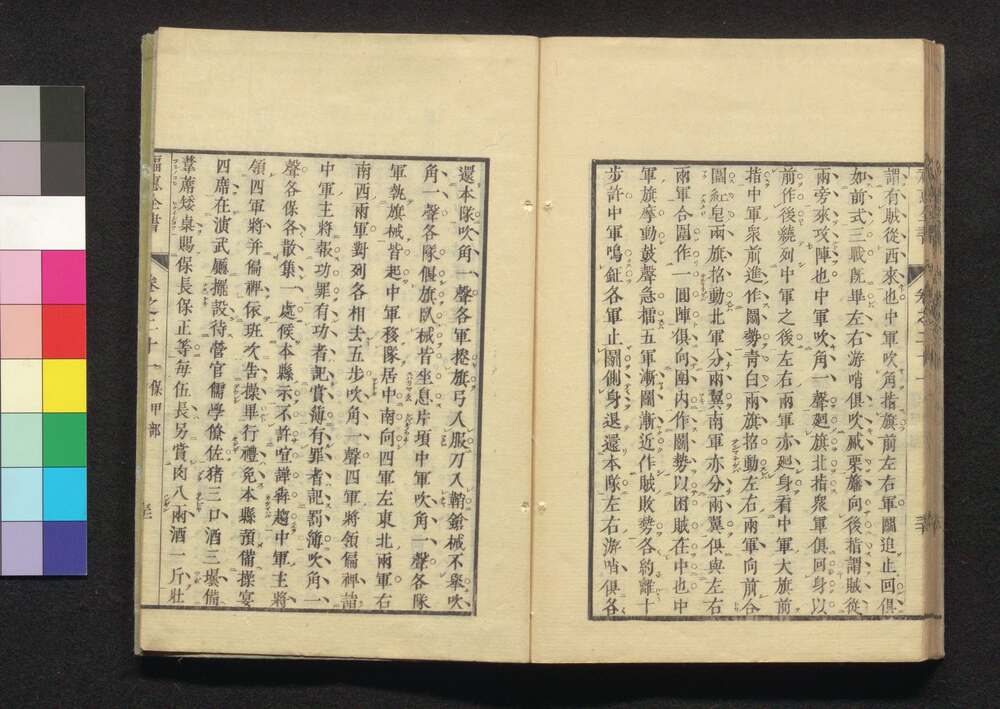 謂有賊從西來也中軍吹角指旗前左右軍闘追止回俱
如前式三戰既畢左右游哨俱吹觱栗簷向後指謂賊從
兩旁來攻陣也中軍吹角一聲廻旗北指衆軍俱回身以
前作後繞列中軍之後左右兩軍亦廻身看中軍大旗前
指中軍衆前進作闘勢青白兩旗招動左右兩軍向前合
圍紅皂兩旗招動北軍分兩翼南軍亦分兩翼俱與左右
兩軍合圍作一圓陣俱向圍內作闘勢以困賊在中也中
軍旗摩動鼓聲急擂五軍漸闘漸近作賊敗勢各約離十
步許中軍鳴鉦各軍止闘側身退還本隊左右游哨俱各
還本隊吹角一聲各軍捲旗弓入服刀入鞘鎗械不舉吹
角一聲各隊偃旗臥械皆坐息片頃中軍吹角一聲各隊
軍執旗械皆起中軍移隊居中南向四軍左東北兩軍右
南西兩軍對列各相去五步吹角一聲四軍將領偏裨詣
中軍主將報功罪有功者記賞簿有罪者記罰簿吹角一
聲各保各散集一處候本縣示不許喧譁犇趨中軍主將
領四軍將并偏裨依班次告操畢行禮免本縣預備操宴
四席在演武廳擺設待營官儒學僚佐猪三口酒三壜備
葦蓆矮桌賜保長保正等每伍長另賞肉八兩酒一斤壯
福惠全書 卷之二十一 保甲部